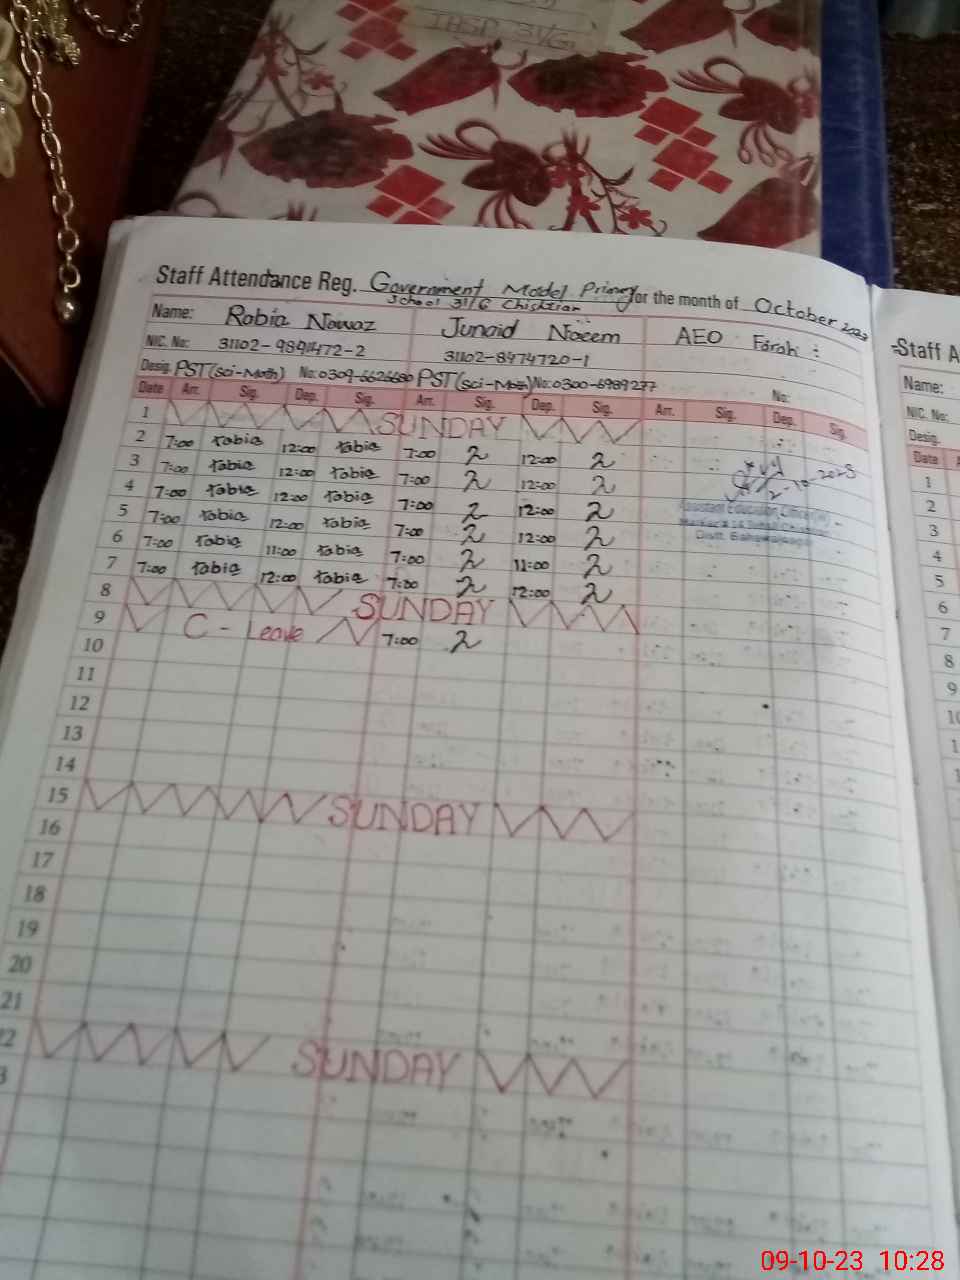 IHSP 31/G
Staff Attendance Reg. Government Model Primary for the month of October 2023
School 31/G Chishtian
Name: Rabia Nawaz Junaid Naeem AEO Farah :
NIC. No: 31102-9891472-2 31102-8474720-1
Desig. PST (sci-Math) No: 0309-6626680 PST (sci-Math) No: 0300-6989277 No:
Date Arr. Sig. Dep. Sig. Arr. Sig. Dep. Sig. Arr. Sig. Dep. Sig.
1 SUNDAY
2 7:00 rabia 12:00 rabia 7:00 12:00
3 7:00 rabia 12:00 rabia 7:00 12:00
4 7:00 rabia 12:00 rabia 7:00 12:00
5 7:00 rabia 12:00 rabia 7:00 12:00
6 7:00 rabia 11:00 rabia 7:00 11:00
7 7:00 rabia 12:00 rabia 7:00 12:00
2-10-2023
Assistant Education Officer
8 SUNDAY
9 C - Leave 7:00
10
11
12
13
14
15 SUNDAY
16
17
18
19
20
21
22 SUNDAY
3
Staff A
Name:
NIC. No:
Desig.
Date
1
2
3
4
5
6
7
8
9
10
1
1
09-10-23 10:28